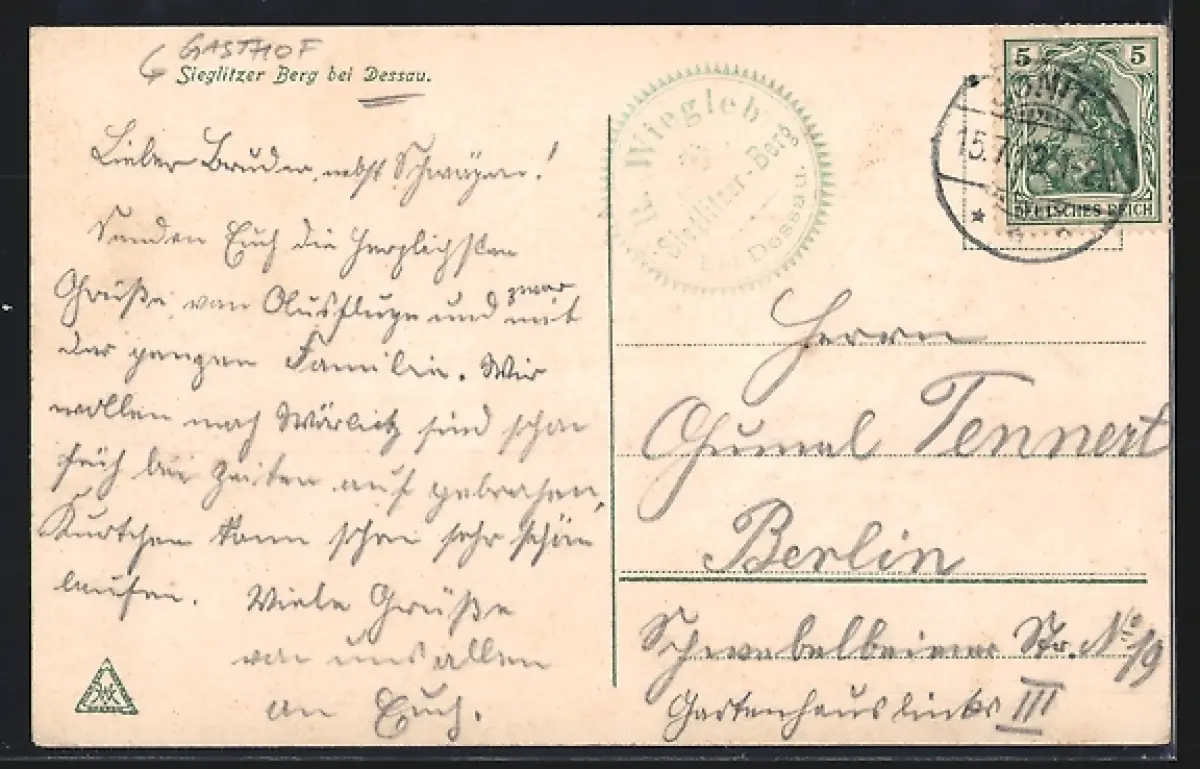 GASTHOF
Sieglitzer Berg bei Dessau.
Lieber Bruder, nebst Schwägerin!
Senden Euch die herzlichsten
Grüße, vom Ausfluge und zwar mit
der ganzen Familie. Wir
wollen nach Wörlitz sind schon
früh bei Zeiten auf gebrochen,
Kurtchen kann schon sehr schön
laufen. Viele Grüße
von uns allen
an Euch.
R. Wiegleb
Sieglitzer-Berg
Dessau.
15.7.
5 5
DEUTSCHES REICH
Herrn
Tennert
Berlin
Schwebelbeiner Str. No 19
Gartenhaus links III